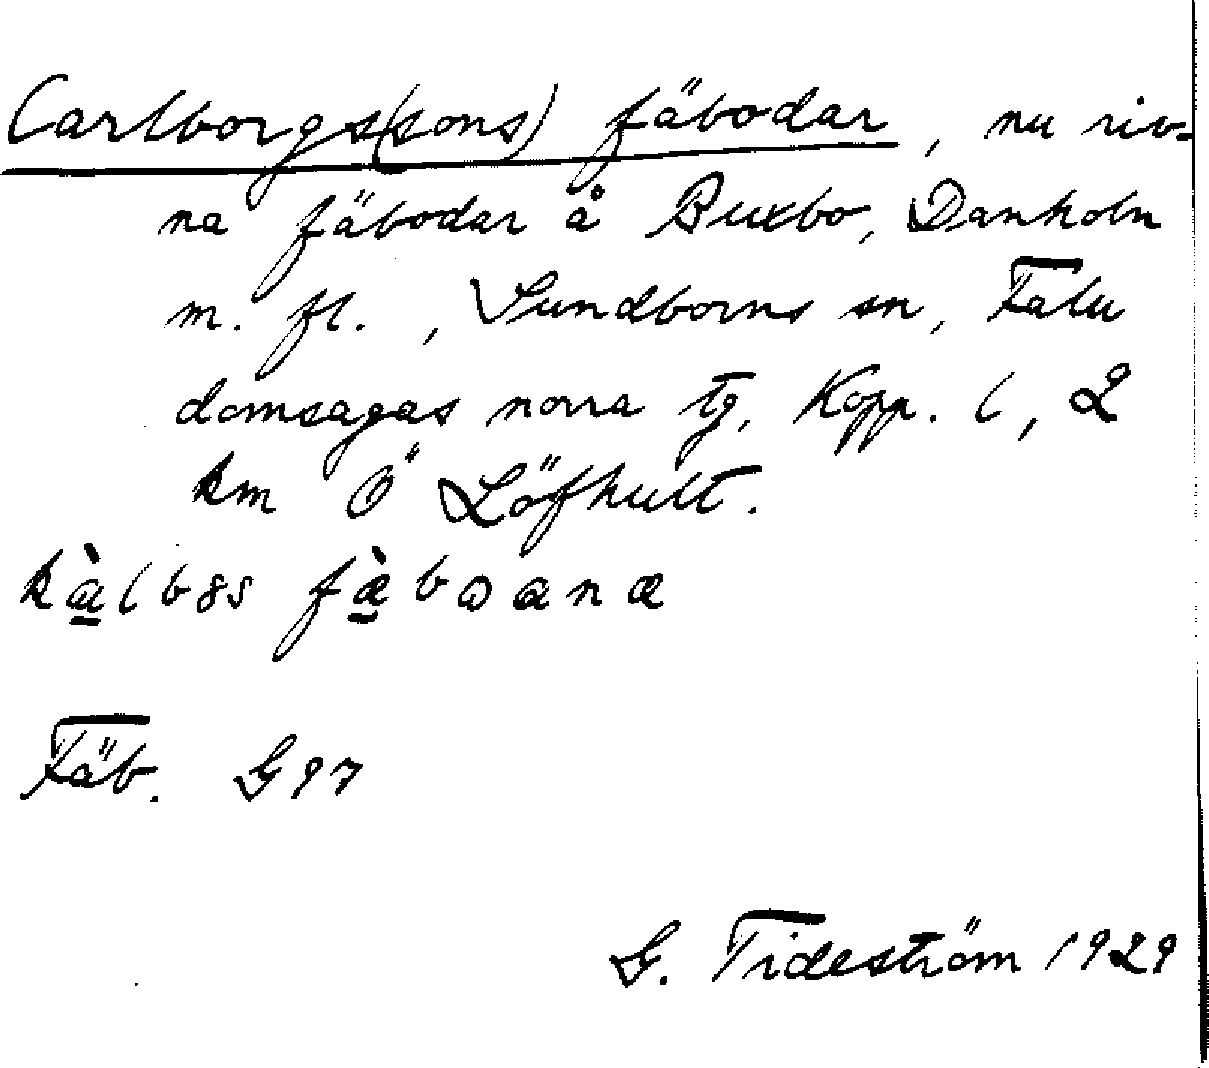 Carlborgs(sons) fäbodar, nu riv-
na fäbodar å Buxbo, Danholn
m. fl., Sundborns sn, Falu
domsagas norra tg, Kopp. l, 2
km Ö Löfhult.
kàlbɞs fæ̀bɷɑnæ
Fäb. G97
G. Tideström 1929